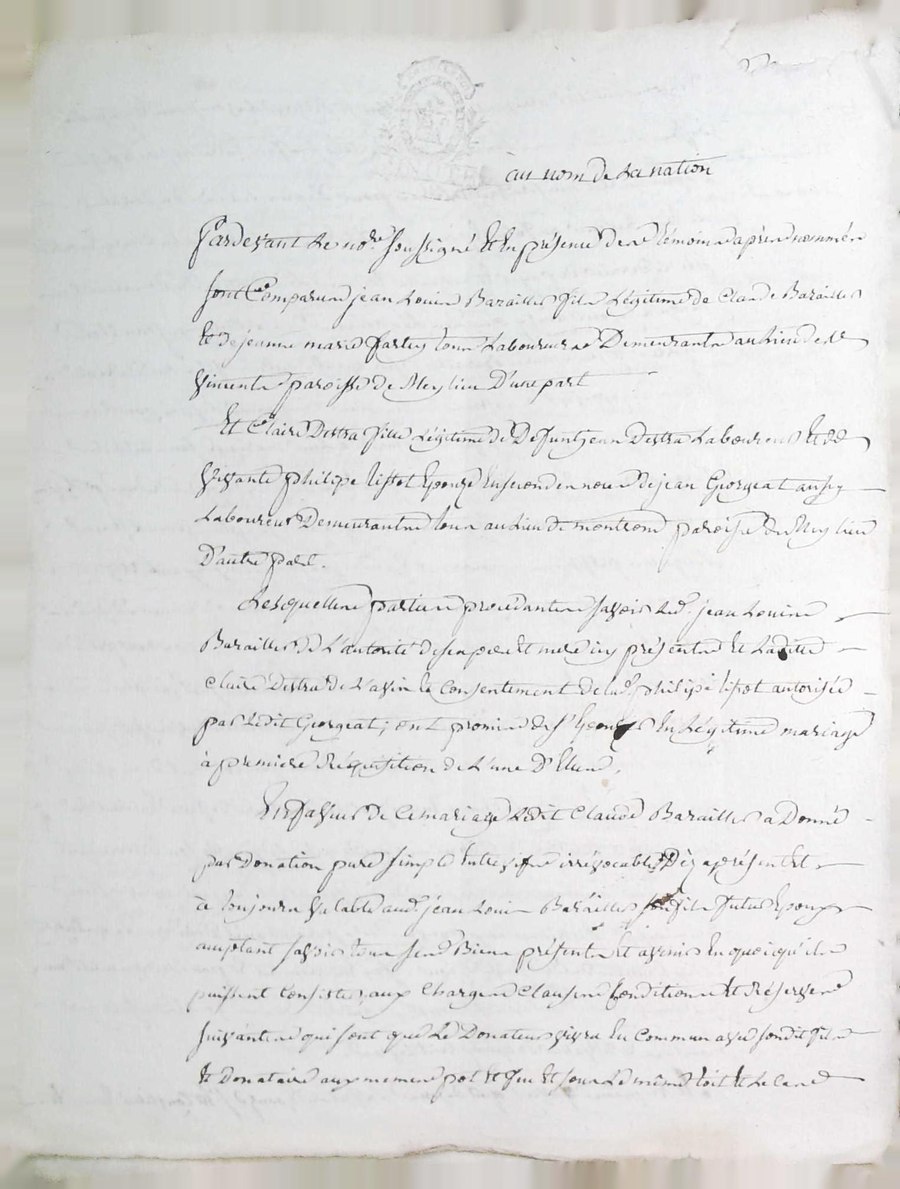 au nom de La nation
Pardevant Le no.re soussigné et En présence des témoins après nommés
sont Comparus jean Louis Barailles fils Légitime de Claude Barailles
Et de jeanne marie tous Laboureurs Demeurants au Lieu des
paroisse de Meylieu D'une part
Et Claire Destra fille Légitime de Defunt jean Destra Laboureur Et de
vivante philipe Epouze En secondes noces de jean Georgeat aussy
Laboureur Demeurants tous au Lieu de montrond paroisse du Meylieu
D'autre part.
Lesquelles parties procedantes savoir Led. jean Louis
Barailles de L'autorité de ses pere Et mere icy présents Et Ladite
Claire Destra de L'avis Le Consentement de lad. philipe autorisée
par Ledit Georgeat; ont promis de s' En Légitime mariage
à premiere Réquisition de L'une D'Elles.
En faveur de Ce mariage Ledit Claude Barailles a Donné
par Donation pure simple Entrevifs irrévocable Dez aprésent Et
à toujours valable aud. jean Louis Barailles son fils futur Epoux
acceptant savoir tous ses Biens présents Et avenir En quoi qu'ils
puissent Consister, aux Charges Clauses Conditions Et Réserves
suivantes qui sont que Le Donateur vivra En Commun avec sondit fils
Et Donataire aux memes pot Et feu Et sous Le même toit Et Le Cas